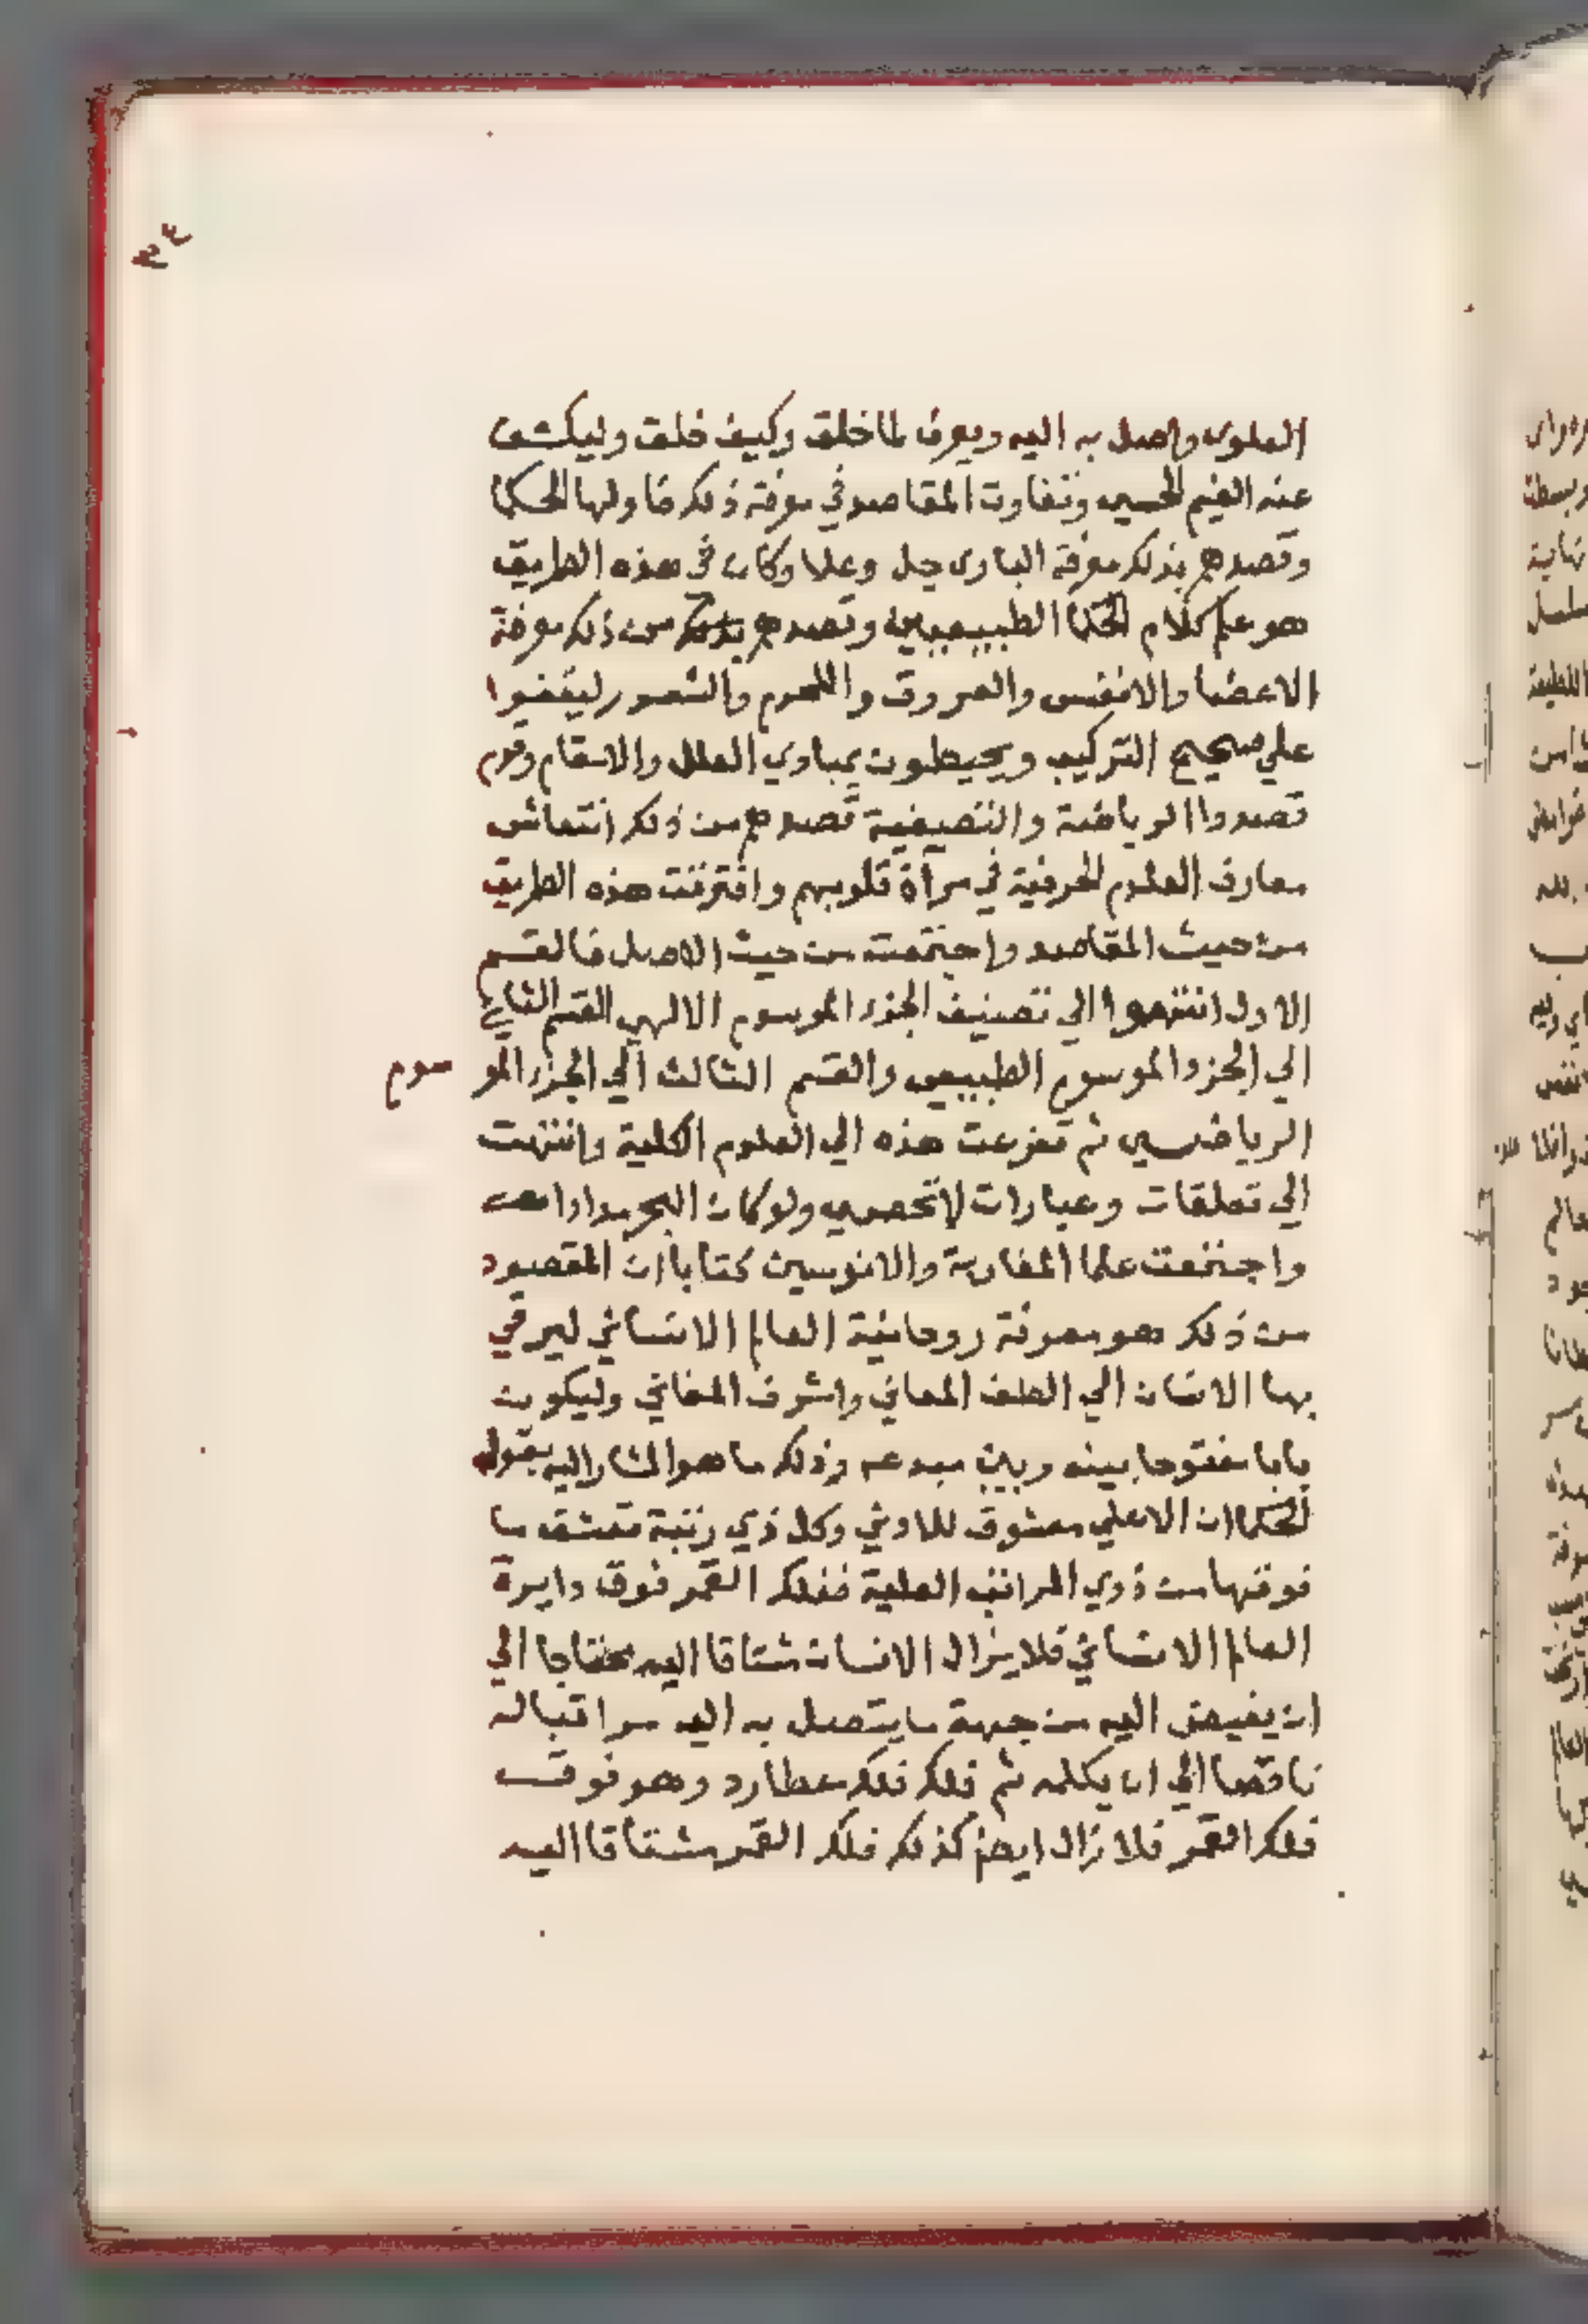 ٣٤
العلوي واصل به اليه ويعرف لما خلق وكيف خلق وليكشف
عنه الغيم الحسي وتفاوت المقاصد في معرفة ذلك فاولها الحكما
وقصدهم بذلك معرفة الباري جل وعلا وكان في هذه الطريق
هو علم كلام الحكما الطبيعيين وقصدهم من ذلك معرفة
الاعضا والانفس والعروق واللحوم والشعور ليقفوا
علي صحيح التركيب ويحيطون بمبادي العلل والاسقام وقوم
قصدوا الرياضة والتصفية قصدهم من ذلك انتعاش
معارف العلوم الحرفية في مرآة قلوبهم وافترقت هذه الطريق
من حيث المقاصد واجتمعت من حيث الاصل فالقسم
الاول انتهوا الي تصنيف الجزء الموسوم الالهي القسم الثاني
الي الجزء الموسوم الطبيعي والقسم الثالث الي الجزء الموسوم
الرياضي ثم تفرعت هذه الي العلوم الكلية وانتهت
الي تعلقات وعبارات لا تحصي ولو كان البحر مدادا
واجتمعت علما المغاربة كتابا ان المقصود
من ذلك هو معرفة روحانية العالم الانساني ليرقي
بها الانسان الي الطف المعاني واشرف المغاني وليكون
بابا مفتوحا بينه وبين مبدعه وذلك ما هو المشار اليه بقول
الحكما ان الاعلي معشوق للادني وكل ذي رتبة تعشق ما
فوقها من ذوي المراتب العلية ففلك القمر فوق دايرة
العالم الانساني فلا يزال الانسان مشتاقا اليه محتاجا الي
ان يفيض اليه من جهة ما يتصل به اليه سر اقباله
ناقصا الي ان يكلمه ثم فلك فلك عطارد وهو فوق
فلك القمر فلا زال ايضا كذلك فلك القمر مشتاقا اليه